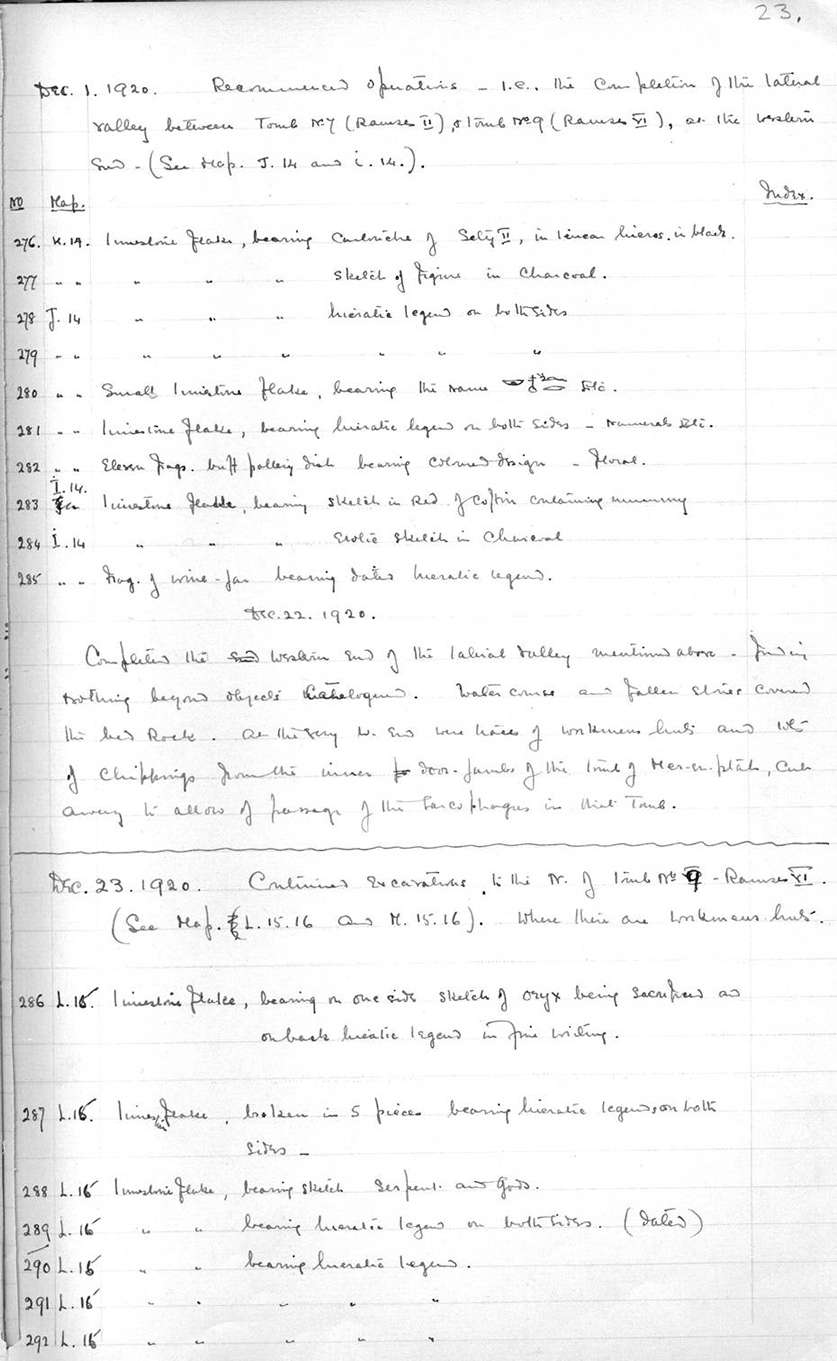 23.
Dec. 1. 1920. Recommenced operations - I.e. the Completion of the lateral
valley between Tomb No 7 (Ramses II), & tomb No 9 (Ramses VI), at the western
End - (See Map. J. 14 and i. 14.).
No Map. Index.
276. K.14. limestone flake, bearing Cartouche of Sety II, in linear hieros. in black.
277 " " " " " Sketch of figure in Charcoal.
278 J. 14 " " " hieratic legend on both sides
279 " " " " " " " "
280 " " Small limestone flake, bearing the name etc.
281 " " limestone flake, bearing hieratic legend on both sides - numerals etc.
282 " " Eleven frags. buff pottery dish bearing coloured design - floral.
283 I.14. limestone flake, bearing sketch in red of coffin containing mummy
284 i.14 " " " Erotic sketch in Charcoal
285 " " Frag. of wine-jar bearing dated hieratic legend.
Dec. 22. 1920.
Completed the Western End of the lateral valley mentioned above - finding
nothing beyond objects catalogued. Water course and fallen stones covered
the bed Rock. At the very W. End were traces of workmens huts and lots
of Chippings from the inner door-jambs of the tomb of Mer-en-ptah, Cut
away to allow of passage of the Sarcophagus in that Tomb.
Dec. 23. 1920. Continued Excavations, to the N. of tomb No 9 - Ramses VI.
(See Map. L. 15.16 and M. 15.16). Where there are workmens huts.
286 L.15. limestone flake, bearing on one side sketch of oryx being sacrificed and
on back hieratic legend in fine writing.
287 L.15. limestone flake, broken in 5 pieces bearing hieratic legends on both
Sides -
288 L.15 limestone flake, bearing sketch Serpent and Gods.
289 L.15 " " bearing hieratic legend on both sides. (dated)
290 L.15 " " bearing hieratic legend.
291 L.15 " " " " "
292 L.15 " " " " "